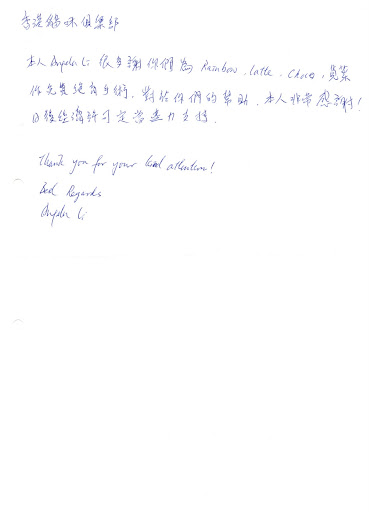 香港貓咪俱樂部
本人Angela Li 很多謝你們為 Rainbow, Latte, Choco, 見榮
作免費絕育手術. 對於你們的幫助, 本人非常感謝!
日後經濟許可定當盡力支持.
Thank you for your kind attention!
Best Regards
Angela Li